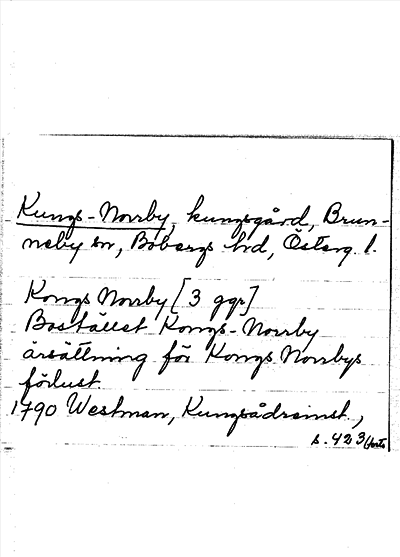 Kungs-Norrby, kungsgård, Brun-
neby sn, Bobergs hd, Österg. l.
Kongs Norrby [3 ggr]
Bostället Kongs-Norrby
ärsättning för Kongs Norrbys
förlust
1790 Westman, Kungsådreinst.,
s. 423 (forts